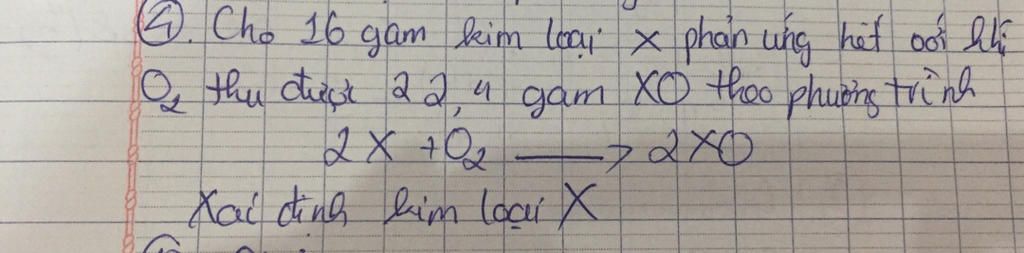 ④. Cho 16 gam kim loại X phản ứng hết với khí
O₂ thu được 22,4 gam XO theo phương trình
2X + O₂ ⟶ 2XO
Xác định kim loại X